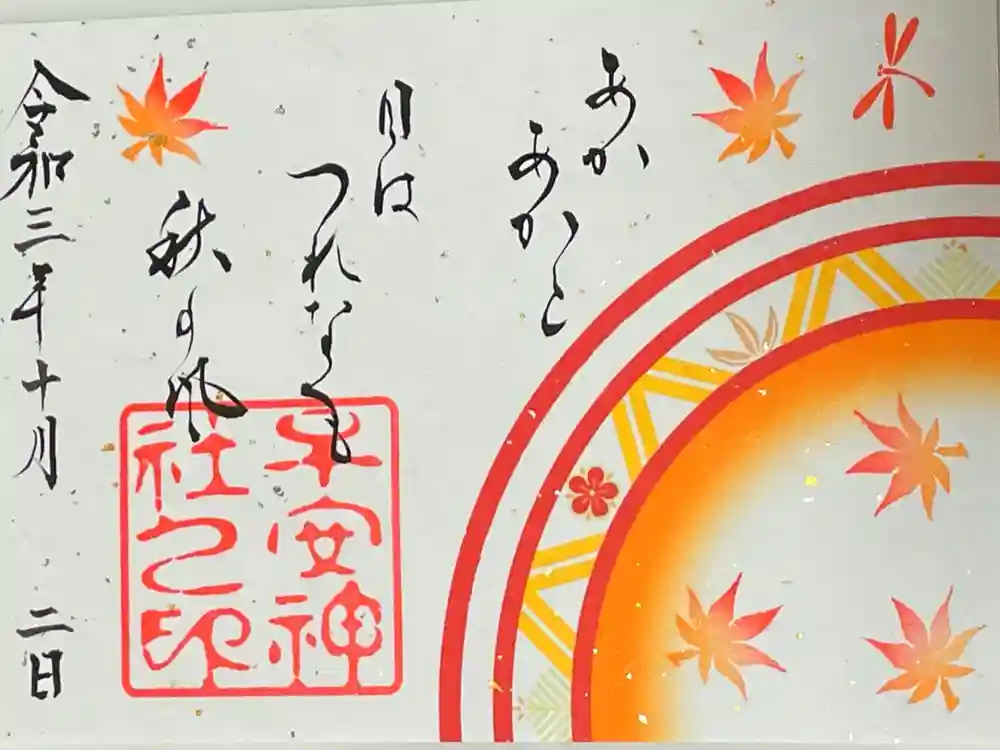 あか
あかと
日は
つれなくも
秋の風
令和三年十月 二日
子安神
社之印